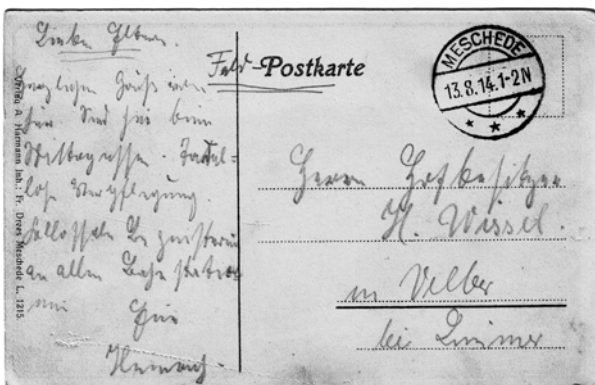 Liebe Eltern.
herzlichen Gruß von
hier. Sind hier beim
Mittagessen. Tadel-
lose Verpflegung.
Kollossale Begeisterung
an allen Bahnstatio-
nen
Euer
Heinrich.
Verlag A. Harmann Inh.: Fr. Drees Meschede L. 1215.
Feld-Postkarte
MESCHEDE
13.8.14.1-2N
Herrn Hofbesitzer
H. Wissel.
in Velber
bei Limmer